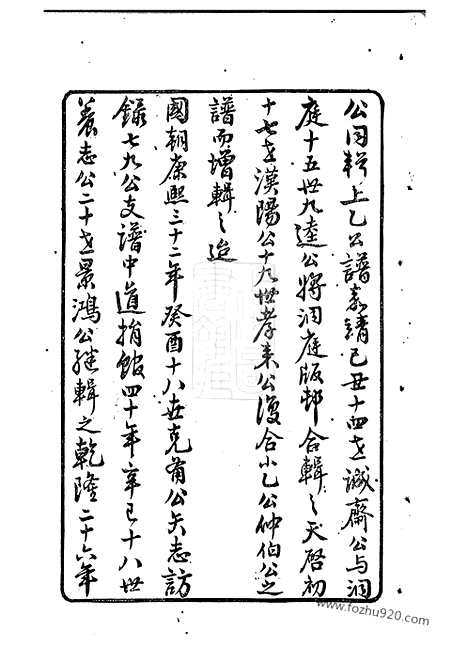 公同輯上乙公譜嘉靖己丑十四世誠齋公与洞
庭十五世九逵公將洞庭版邨合輯之天啓初
十七世漢陽公十九世孝来公復合小乙公仲伯公之
譜而增輯之迨
國朝康熙三十二年癸酉十八世克甫公矢志訪
錄七九公支譜中道捐館四十年辛巳十八世
養志公二十世景鴻公继輯之乾隆二十六年
www.fozhu920.com